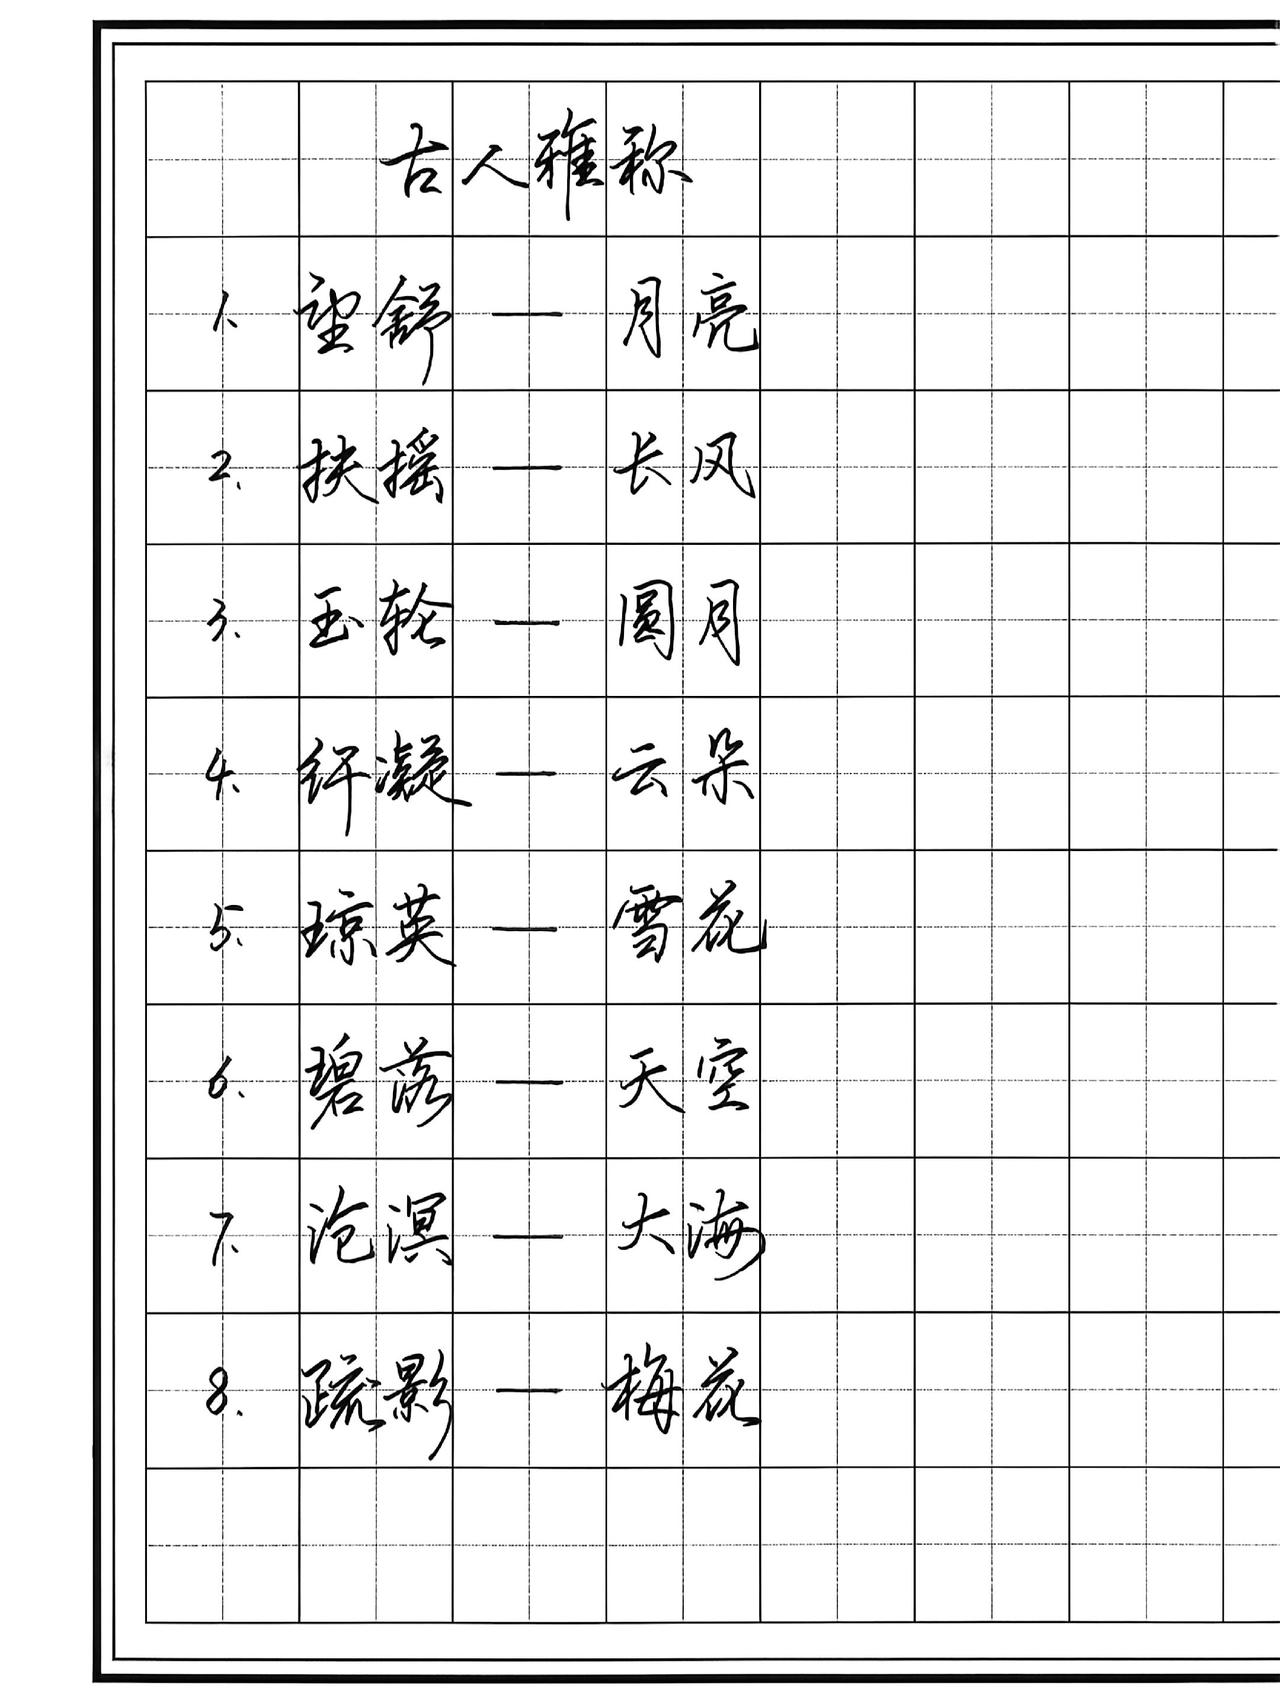 古人雅称
1. 望舒 — 月亮
2. 扶摇 — 长风
3. 玉轮 — 圆月
4. 纤凝 — 云朵
5. 琼英 — 雪花
6. 碧落 — 天空
7. 沧溟 — 大海
8. 疏影 — 梅花